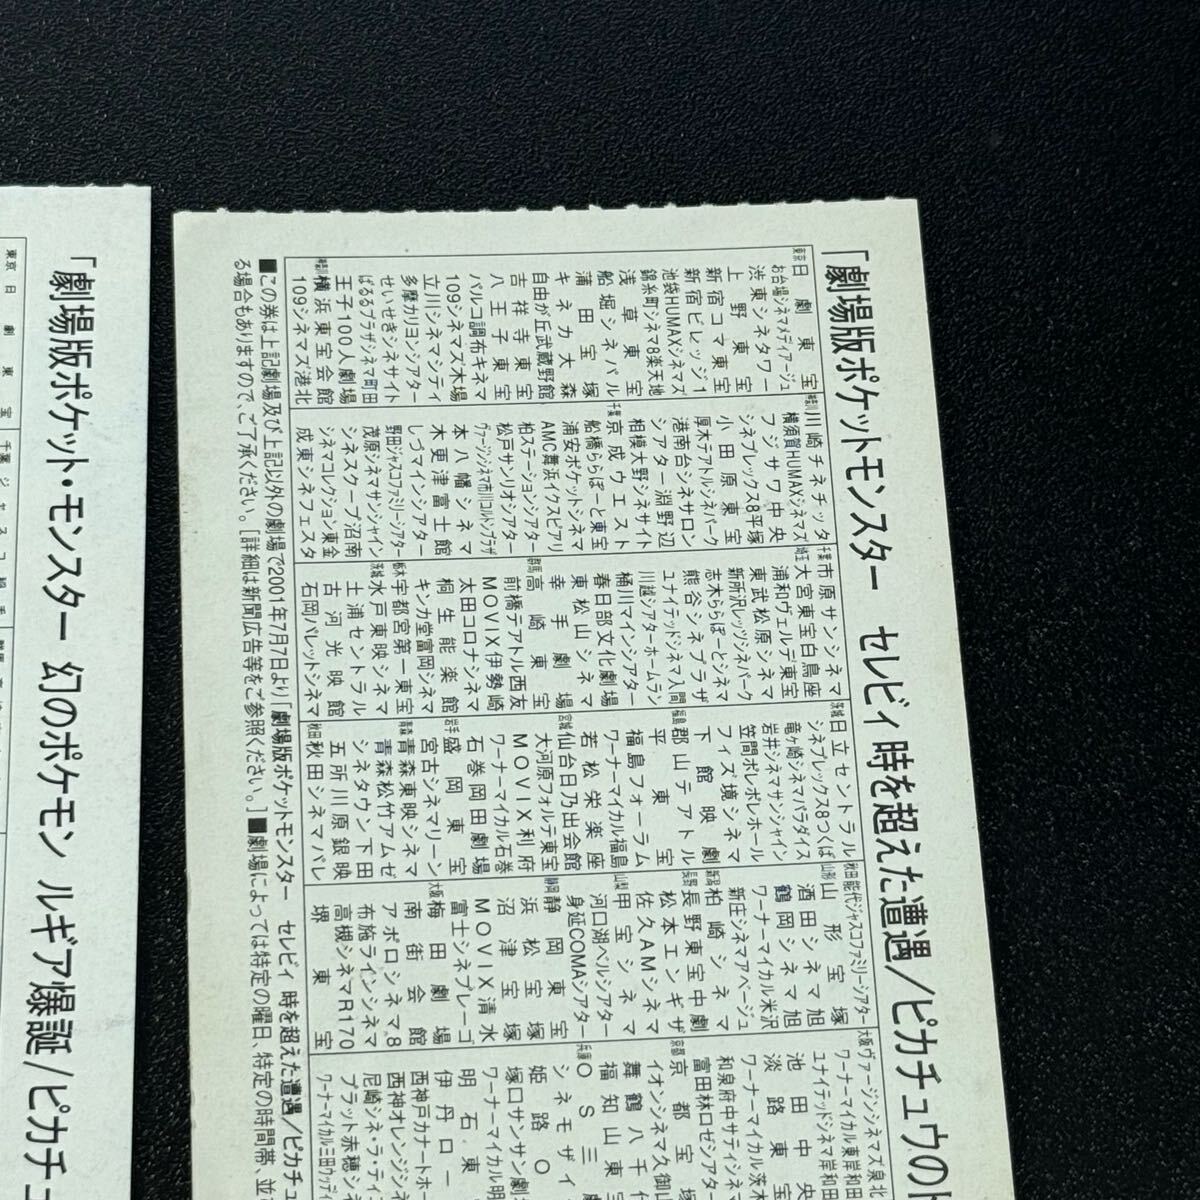 「劇場版ポケット・モンスター 幻のポケモン ルギア爆誕/ピカチュ
東京 日劇東宝
「劇場版ポケットモンスター セレビィ 時を超えた遭遇/ピカチュウのド
東京 日劇東宝
お台場シネマメディアージュ
渋東シネタワー
上野東宝
新宿コマ東宝
新宿ビレッジ1
池袋HUMAXシネマズ
錦糸町シネマ8楽天地
浅草東宝
船堀シネパル
蒲田宝塚
キネカ大森
自由が丘武蔵野館
吉祥寺東宝
八王子東宝
パルコ調布キネマ
109シネマズ木場
立川シネマシティ
多摩カリヨンシアター
せいせきシネサイト
ぱるるプラザシネマ町田
王子100人劇場
神奈川 横浜東宝会館
109シネマズ港北
神奈川 川崎チネチッタ
横須賀HUMAXシネマズ
フジサワ中央
シネプレックス8平塚
小田原東宝
厚木テアトルシネパーク
港南台シネサロン
シアター淵野辺
相模大野シネサイト
千葉 京成ウエスト
船橋ららぽーと東宝
浦安ポケットシネマ
AMC舞浜イクスピアリ
柏ステーションシアター
松戸サンリオシアター
ヴァージンシネマズ市川コルトンプラザ
本八幡シネマ
木更津富士館
しづマインシアター
野田ジャスコファミリーシアター
茂原シネマサンシャイン
シネスケープ沼南
シネマコレクション東金
成東シネフェスタ
千葉 市原サンシネマ
埼玉 大宮東宝白鳥座
浦和ヴェルデ東宝
東武松原シネマ
新所沢レッツシネパーク
志木ららぽーとシネマ
熊谷シネプラザ
ユナイテッドシネマ入間
川越シアターホームラン
桶川マインシアター
春日部文化劇場
東松山シネマ
幸手劇場
群馬 高崎東宝
前橋テアトル西友
MOVIX伊勢崎
太田コロナシネマ
桐生能楽館
キンカ堂富岡シネマ
栃木 宇都宮第一東宝
茨城 水戸東映シネマ
土浦セントラル
古河光映館
石岡パレットシネマ
茨城 日立セントラル
シネプレックス8つくば
竜ヶ崎シネマパラダイス
岩井シネサンシャイン
笠間ポレポレホール
フィズ境シネマ
下館映劇
福島 郡山テアトル
平東宝
福島フォーラム
ワーナーマイカル福島
若松栄楽座
宮城 仙台日乃出会館
大河原フォルテ東宝
MOVIX利府
ワーナーマイカル石巻
石巻岡田劇場
岩手 盛岡東宝
宮古シネマリーン
青森 青森東映シネマ
青森松竹アムゼ
シネタウン下田
五所川原銀映
秋田 秋田シネマパレ
秋田 能代ジャスコファミリーシアター
山形 山形宝塚
酒田シネマ旭
鶴岡シネマ旭
ワーナーマイカル米沢
新庄シネマアページュ
新潟 柏崎シネマ
長野 長野東宝中劇
松本エンギザ
佐久AMシネマ
山梨 甲宝シネマ
河口湖ベルシアター
身延COMAシアター
静岡 静岡東宝
浜松宝塚
沼津宝塚
MOVIX清水
富士シネプレーゴ
大阪 梅田劇場
南街会館
アポロシネマ8
布施ラインシネマ
高槻シネマR170
堺東宝
大阪 ヴァージンシネマズ泉北
ワーナーマイカル東岸和田
ユナイテッドシネマ岸和田
池田中央
淡路東
ワーナーマイカル茨木
和泉府中サティシネマ
富田林ロゼシアター
京都 京都宝塚
イオンシネマ久御山
舞鶴八千代
福知山東
兵庫 OS三劇
シネモザイ
姫路O
塚口サンサン劇
ワーナーマイカル明
明石東
伊丹ロー
西神戸カナートホー
西神オレンジシネ
尼崎シネ・ラ・ティ
プラット赤穂シ
ワーナーマイカル三田ウッディ
■この券は上記劇場及び上記以外の劇場で2001年7月7日より「劇場版ポケットモンスター セレビィ 時を超えた遭遇/ピカチュ
る場合もありますので、ご了承ください。[詳細は新聞広告等をご参照ください。]■劇場によっては特定の曜日、特定の時間帯、並